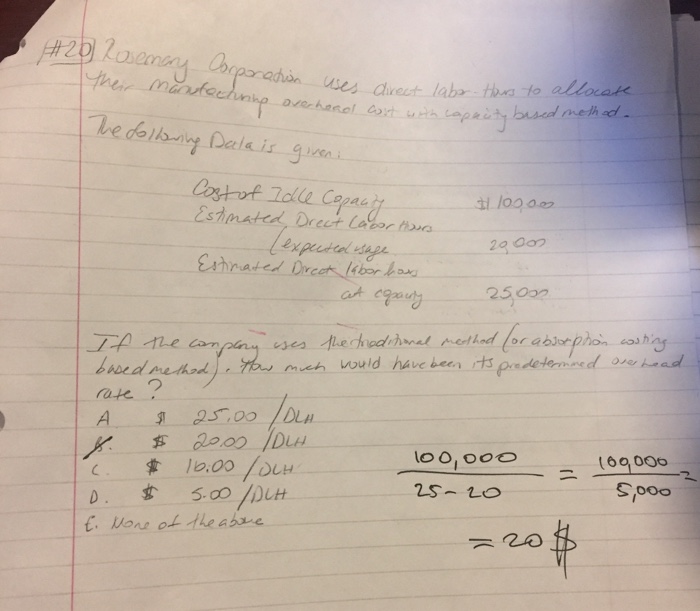 #20) Rosemary Corporation uses direct labor hours to allocate
their manufacturing overhead cost with capacity based method.
The following Data is given:
Cost of Idle Capacity $100,000
Estimated Direct Labor Hours
(expected usage 20,000
Estimated Direct labor hours
at capacity 25,000
If the company uses the traditional method (or absorption costing
based method). How much would have been its predetermined overhead
rate?
A $ 25.00 /DLH
B. $ 20.00 /DLH
C. $ 10.00 /DLH
D. $ 5.00 /DLH
E. None of the above
100,000 / 25-20 = 100,000 / 5,000 =
= 20 $